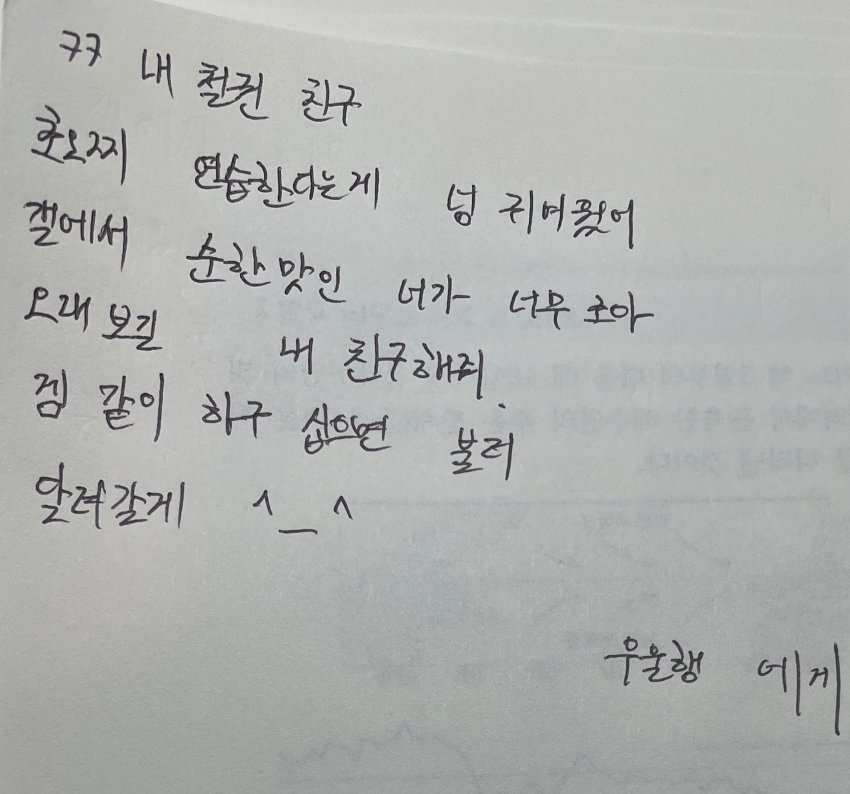 ㅋㅋ 내 철권 친구
초오찌 연습한다는게 넝 귀여웠어
갤에서 순한맛인 너가 너무 조아
오래 보길 내 친구해줘.
겜 같이 하구 십으면 불러
달려갈게 ^_^
우울행 에게